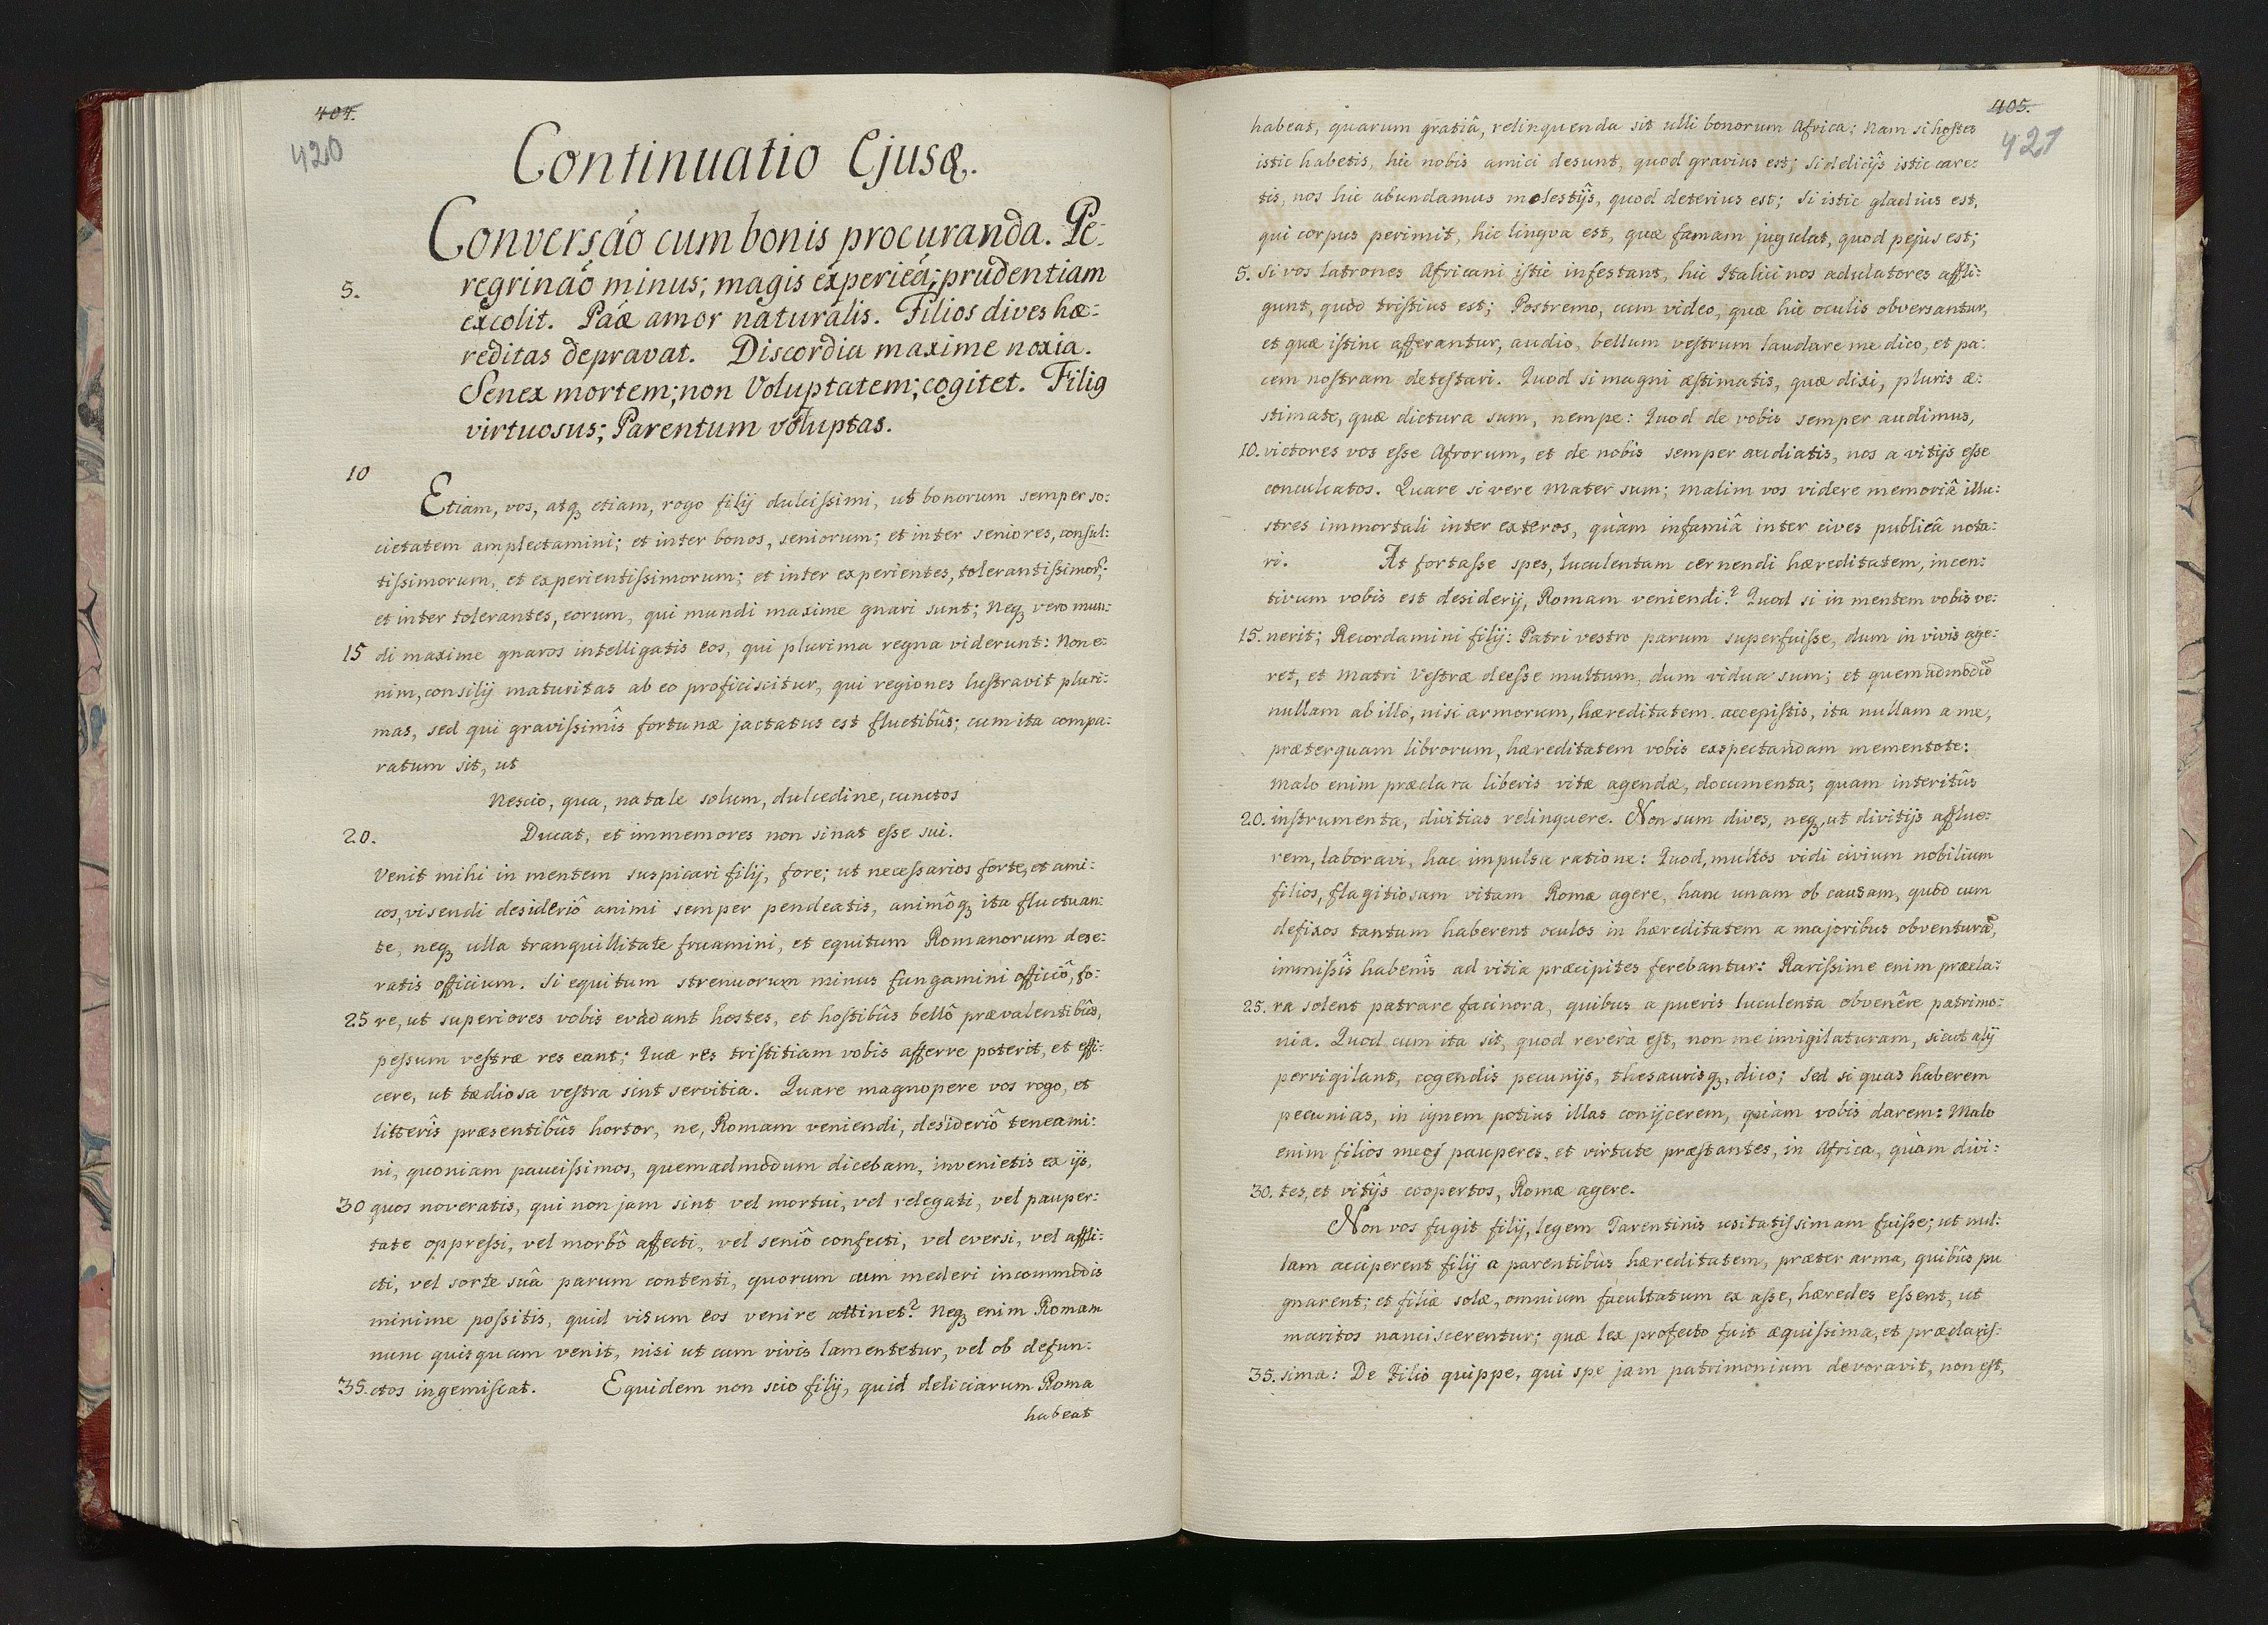 404.
420
Continuatio Ejusq.
Conversáo cum bonis procuranda. Pe:
5. regrinaó minus; magis experieá; prudentiam
excolit. Páæ amor naturalis. Filios dives hæ:
reditas depravat. Discordia maxime noxia.
Senex mortem; non Voluptatem; cogitet. Filig
virtuosus; Parentum voluptas.
10
Etiam, vos, atq3 etiam, rogo filij dulcissimi, ut bonorum semper so:
cietatem amplectamini; et inter bonos, seniorum; et inter seniores, consul:
tissimorum, et experientissimorum; et inter experientes, tolerantissimor;
et inter tolerantes, eorum, qui mundi maxime gnari sunt; Neq3 vero mun:
15 di maxime gnaros intelligatis eos, qui plurima regna viderunt: Non e:
nim, consilij maturitas ab eo proficiscitur, qui regiones lustravit pluri:
mas, sed qui gravissimîs fortunæ jactatus est fluctibûs; cum ita compa:
ratum sit, ut
Nescio, qua, natale solum, dulcedine, cunctos
20. Ducat, et immemores non sinat esse sui.
Venit mihi in mentem suspicari filij, fore; ut necessarios forte, et ami:
cos, visendi desideriô animi semper pendeatis, animôq3 ita fluctuan:
te, neq3 ulla tranquillitate fruamini, et equitum Romanorum dese:
ratis officium. Si equitum strenuorum minus fungamini officiô, fo:
25 re, ut superiores vobis evadant hostes, et hostibûs bellô prævalentibûs,
pessum vestræ res eant; Quæ res tristitiam vobis afferre poterit, et effi:
cere, ut tædiosa vestra sint servitia. Quare magnopere vos rogo, et
litterîs præsentibûs hortor, ne, Romam veniendi, desideriô teneami:
ni, quoniam paucissimos, quemadmodum dicebam, invenietis ex ijs,
30 quos noveratis, qui non jam sint vel mortui, vel relegati, vel pauper:
tate oppressi, vel morbô affecti, vel seniô confecti, vel eversi, vel affli:
cti, vel sorte suâ parum contenti, quorum cum mederi incommodis
minime possitis, quid visum eos venire attinet? Neq3 enim Romam
nunc quisquam venit, nisi ut cum vivis lamentetur, vel ob defun:
35. ctos ingemiscat. Equidem non scio filij, quid deliciarum Roma
habeat
405.
421
habeat, quarum gratiâ, relinquenda sit ulli bonorum Africa; Nam si hostes
istic habetis, hic nobis amici desunt, quod gravius est; Si delicijs istic care:
tis, nos hic abundamus molestijs, quod deterius est; Si istic gladius est,
qui corpus perimit, hic lingva est, quæ famam jugulat, quod pejus est;
5. Si vos latrones Africani istic infestant, hic Italici nos adulatores affli:
gunt, quod tristius est; Postremo, cum video, quæ hic oculis obversantur,
et quæ istinc afferantur, audio, bellum vestrum laudare me dico, et pa:
cem nostram detestari. Quod si magni æstimatis, quæ dixi, pluris æ:
stimate, quæ dictura sum, nempe: Quod de vobis semper audimus,
10. victores vos esse Afrorum, et de nobis semper audiatis, nos a vitijs esse
conculcatos. Quare si vere Mater sum; malim vos videre memoriâ illu:
stres immortali inter exteros, quàm infamiâ inter cives publicâ nota:
ri. At fortasse spes, luculentam cernendi hæreditatem, incen:
tivum vobis est desiderij, Romam veniendi? Quod si in mentem vobis ve:
15. nerit; Recordamini filij: Patri vestro parum superfuisse, dum in vivis age:
ret, et Matri Vestræ deesse multum, dum vidua sum; et quemadmodū
nullam ab illo, nisi armorum, hæreditatem accepistis, ita nullam a me,
præterquam librorum, hæreditatem vobis exspectandam mementote:
Malo enim præclara liberis vitæ agendæ, documenta; quam interitûs
20. instrumenta, divitias relinquere. Non sum dives, neq3, ut divitijs afflue:
rem, laboravi, hac impulsa ratione: Quod, multos vidi civium nobilium
filios, flagitiosam vitam Romæ agere, hanc unam ob causam, quòd cum
defixos tantum haberent oculos in hæreditatem a majoribus obventurā,
immissîs habenîs ad vitia præcipites ferebantur: Rarissime enim præcla:
25. ra solent patrare facinora, quibus a pueris luculenta obvenêre patrimo:
nia. Quod cum ita sit, quod reverà est, non me invigilaturam, sicut alij
pervigilant, cogendis pecunijs, thesaurisq3, dico; Sed si quas haberem
pecunias, in ignem potius illas conijcerem, quàm vobis darem: Malo
enim filios meos pauperes, et virtute præstantes, in Africa, quàm divi:
30. tes, et vitijs coopertos, Romæ agere.
Non vos fugit filij, legem Tarentinis usitatissimam fuisse; ut nul:
lam acciperent filij a parentibùs hæreditatem, præter arma, quibûs pu
gnarent; et filiæ solæ, omnium facultatum ex asse, hæredes essent, ut
maritos nanciscerentur; quæ lex profecto fuit æquissima, et præclaris:
35. sima: De Filio quippe, qui spe jam patrimonium devoravit, non est,